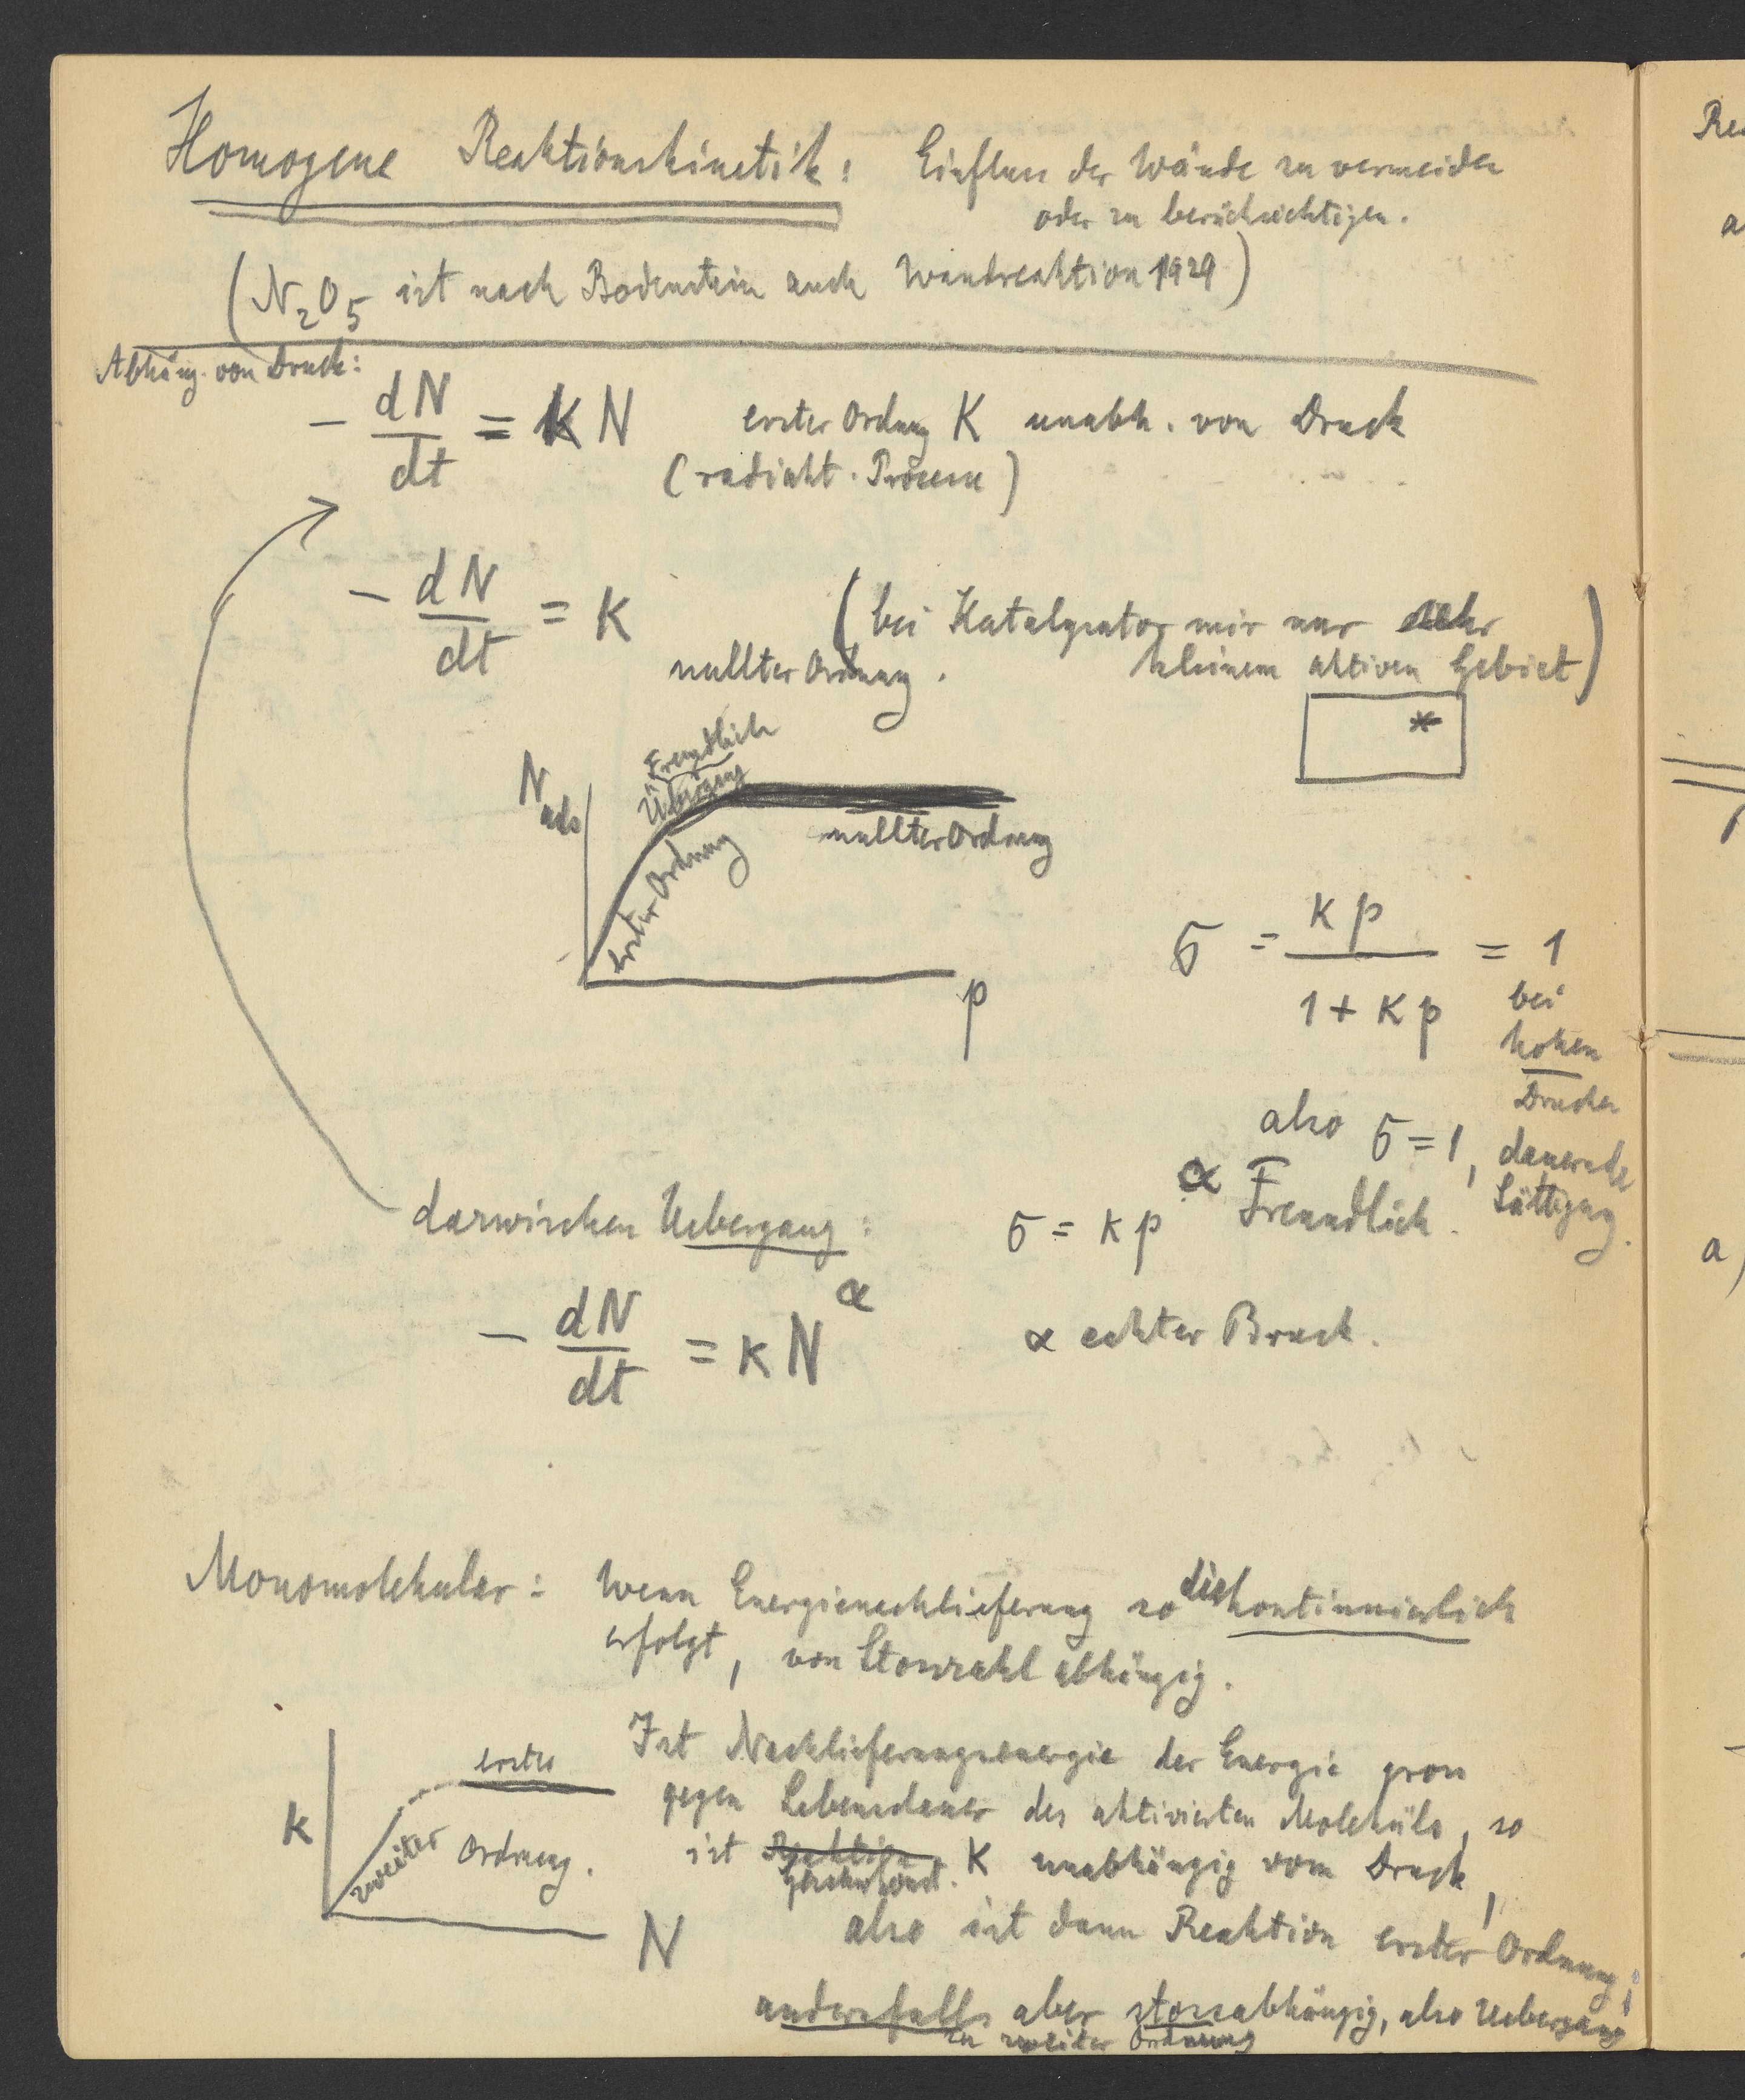 Homogene Reaktionskinetik: Einfluss der Wände zu vermeiden
oder zu berücksichtigen.
(N₂O₅ ist nach Bodenstein auch Wandreaktion 1929)
Abhäng. von Druck:
- dN/dt = K N erster Ordnung K unabh. von Druck
(radioakt. Prozesse)
- dN/dt = K (bei Katalysator mir nur sehr
nullter Ordnung. kleinem aktiven Gebiet)
*
Freundlich
Übergang
N ads
nullter Ordnung
erster Ordnung
p
σ = K p / 1 + K p = 1
bei
hohen
Drucken
also σ = 1, dauernde
Sättigung.
σ = K p^α Freundlich.
dazwischen Uebergang:
- dN/dt = K N^α
α echter Bruch.
Monomolekular: Wenn Energienachlieferung so diskontinuierlich
erfolgt, von Stosszahl abhängig.
Ist Nachlieferungsenergie der Energie gross
gegen Lebensdauer des aktivierten Moleküls, so
ist K unabhängig vom Druck,
also ist dann Reaktion erster Ordnung;
andernfalls aber stossabhängig, also Uebergang
zu zweiter Ordnung
K
erster
zweiter Ordnung.
N
Re
a
a)